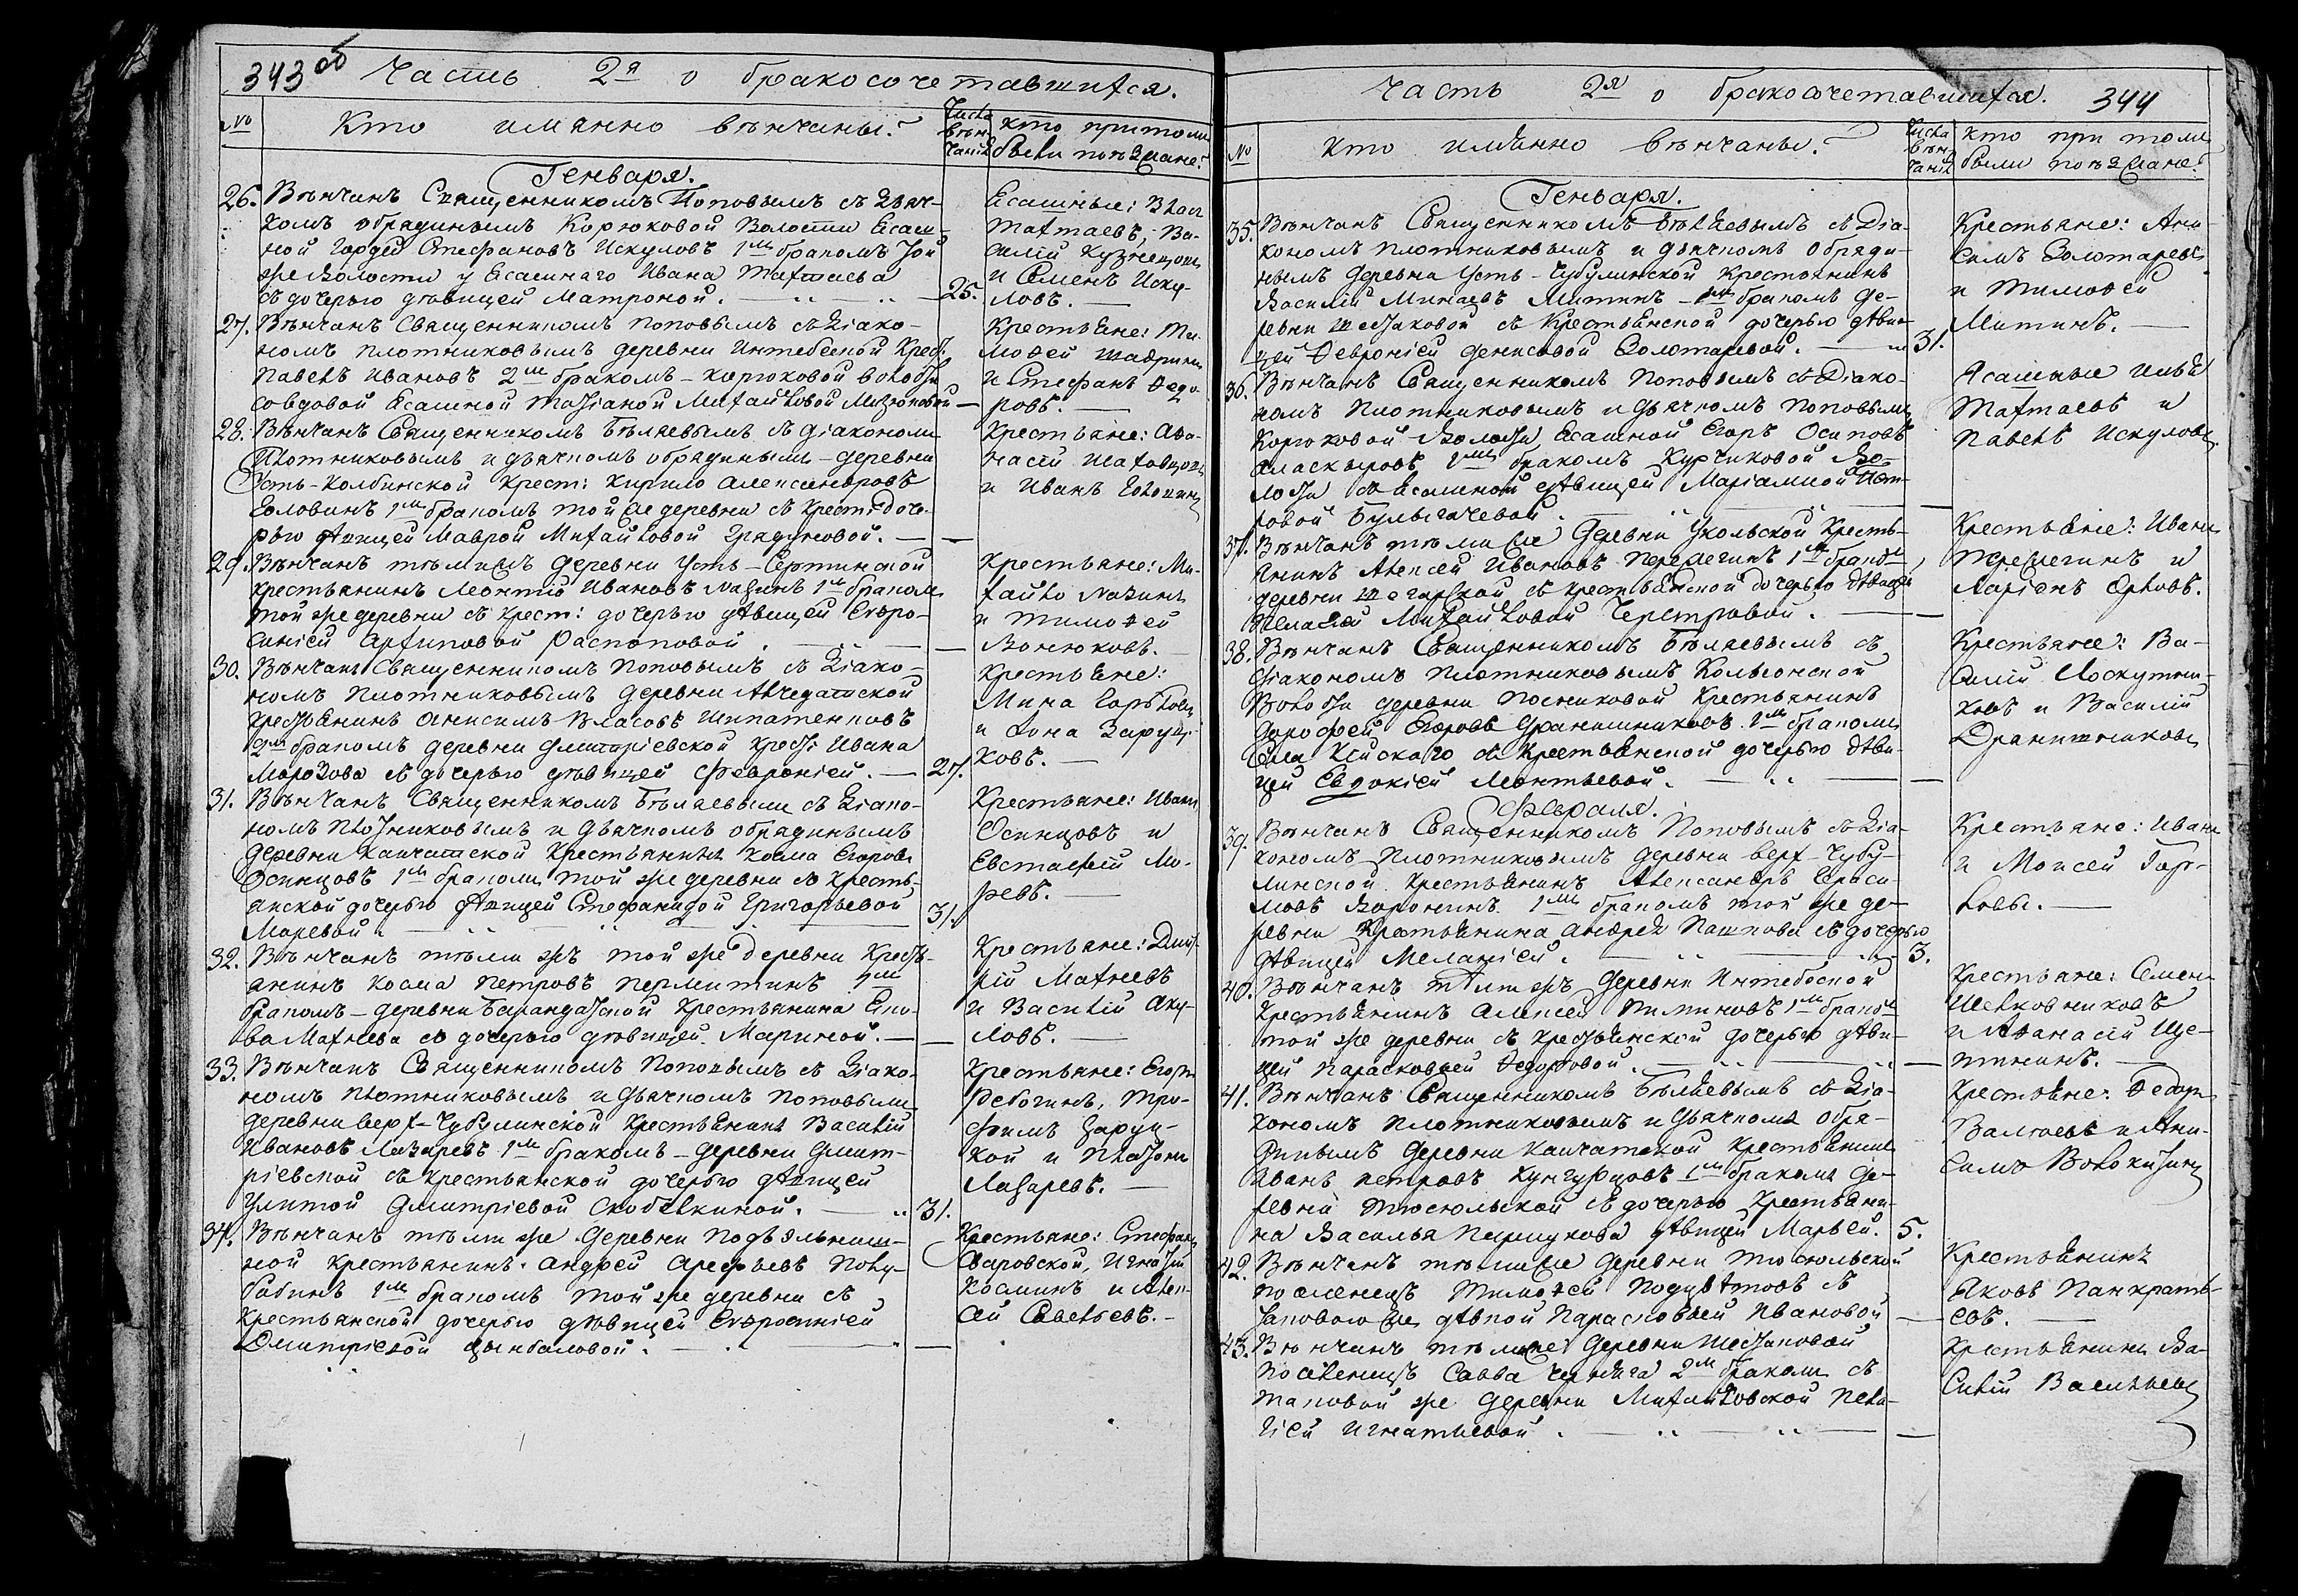 343 об Часть 2я о бракосочетавшихся.
№ Кто имянно венчаны? Числа вѣн- чанія кто при томъ были поѣзжане?
Генваря.
26. Вѣнчанъ Священникомъ Поповымъ съ дьяч-
комъ обрядинымъ Корюковой Волости Ясаш-
ной Гордей Стефановъ Искуловъ 1мъ бракомъ той
же волости у Ясашнаго Ивана Тахтаева
съ дочерью дѣвицей Матроной. 25.
Есашные: Влас
Тахтаевъ, Ва-
силій Кузнецовъ
и Семенъ Иску-
ловъ.
27. Вѣнчанъ Священникомъ Поповымъ съ Діако-
номъ Плотниковымъ деревни Интебеской Крест:
Павелъ Ивановъ 2мъ бракомъ - Корюковой волости
со вдовой Есашной Татіаной Михайловой
Крестьяне: Ти-
мофей Шабринъ
и Стефанъ Ѳедо-
ровъ.
28. Вѣнчанъ Священникомъ Бѣляевымъ съ діакономъ
Плотниковымъ и дьячкомъ обрядинымъ - деревни
Усть-Колбинской Крест: Кирило Александровъ
Головинъ 1мъ бракомъ той же деревни съ Крест: доче-
рью дѣвицей Маврой Михайловой
Крестьяне: Аѳа-
насій Шаховцовъ
и Иванъ
29. Вѣнчанъ тѣми же деревни Усть-Сертинской
Крестьянинъ Леонтій Ивановъ Мазинъ 1мъ бракомъ
той же деревни съ крест: дочерью дѣвицей Евфро-
синіей Архиповой Распоповой.
Крестьяне: Ми-
хайло Мазинъ
и Тимоѳей
Вонюковъ.
30. Вѣнчанъ Священникомъ Поповымъ съ Діако-
номъ Плотниковымъ деревни Алчедатской
Крестьянинъ Онисимъ Власовъ Ипатенковъ
2мъ бракомъ деревни Дмитріевской Крест: Ивана
Морозова съ дочерью дѣвицей Февроніей. 27.
Крестьяне:
Мина Горбовъ
и Іона Заруц-
ковъ.
31. Вѣнчанъ Священникомъ Бѣляевымъ съ Діако-
номъ Плотниковымъ и дьячкомъ обрядинымъ
деревни Каичатской Крестьянинъ Косма Егоровъ
Осинцовъ 1мъ бракомъ той же деревни съ Кресть-
янской дочерью дѣвицей Стефанидой Григорьевой
Моревой. 31.
Крестьяне: Иванъ
Осинцовъ и
Евстафій Мо-
ревъ.
32. Вѣнчанъ тѣми жъ той же деревни Кресть-
янинъ Косма Петровъ Пермитинъ 1мъ
бракомъ - деревни Барандатской Крестьянина Яко-
ва Махнева съ дочерью дѣвицей Мариной.
Крестьяне: Дмит-
рій Махневъ
и Василій Аку-
ловъ.
33. Вѣнчанъ Священникомъ Поповымъ съ Діако-
номъ Плотниковымъ и дьячкомъ Поповымъ
деревни верх-Чубулинской Крестьянинъ Василій
Ивановъ Лазаревъ 1мъ бракомъ - деревни Дмит-
ріевской съ крестьянской дочерью дѣвицей
Улитой Дмитріевой Скобелкиной. 31.
Крестьяне: Егоръ
Ребогинъ, Тро-
фимъ Заруц-
кой и Платонъ
Лазаревъ.
34. Вѣнчанъ тѣми же деревни Подъельнич-
ной Крестьянинъ Андрей Арефьевъ Полу-
бабинъ 1мъ бракомъ той же деревни съ
Крестьянской дочерью дѣвицей Евфросиніей
Дмитріевой Цынбаловой.
Крестьяне: Стефанъ
Сваровской, Игнатій
Косминъ и Алек-
сѣй Савельевъ.
Часть 2я о бракосочетавшихся. 344
№ Кто имянно вѣнчаны? Числа вѣн- чанія Кто при томъ были поѣзжане?
Генваря.
35. Вѣнчанъ Священникомъ Бѣляевымъ съ Діа-
кономъ Плотниковымъ и дьячкомъ Обряди-
нымъ деревни Усть-Чубулинской Крестьянинъ
Василій Минаевъ Митинъ - 1мъ бракомъ де-
ревни Шестаковой съ Крестьянской дочерью дѣви-
цей Ѳевроніей Денисовой Золотаревой. 31.
Крестьяне: Ани-
симъ Золотаревъ
и Тимоѳей
Митинъ.
36. Вѣнчанъ Священникомъ Поповымъ съ Діако-
номъ Плотниковымъ и дьячкомъ Поповымъ
Корюковой Волости Ясашной Егоръ Осиповъ
1мъ бракомъ Курчиковой Во-
лости съ Ясашной дѣвицей Маріамной
Булыгачевой.
Ясашные Илья
Тахтаевъ и
Павелъ Искуловъ
37. Вѣнчанъ тѣми же деревни Укольской Кресть-
янинъ Алексѣй Ивановъ Перелегинъ 1мъ бракомъ
деревни съ крестьянской дочерью дѣвицей
Пелагеей Михайловой
Крестьяне: Иванъ
Перелегинъ и
Ларіонъ Орловъ.
38. Вѣнчанъ Священникомъ Бѣляевымъ съ
Діакономъ Плотниковымъ Кольіонской
Волости деревни Посниковой Крестьянинъ
Дорофей Егоровъ Дранишниковъ 1мъ бракомъ
Села Кійскаго съ Крестьянской дочерью дѣви-
цей Евдокіей Леонтьевой.
Крестьяне: Ва-
силій Лоскутни-
ковъ и Василій
Дранишниковъ
Февраля.
39. Вѣнчанъ Священникомъ Поповымъ съ Діа-
кономъ Плотниковымъ деревни верх-Чубу-
линской Крестьянинъ Александръ Гераси-
мовъ Воронинъ 1мъ бракомъ той же де-
ревни Крестьянина Андрея Пашкова съ дочерью
дѣвицей Меланіей. 3.
Крестьяне: Иванъ
и Моисей Гор-
ловы.
40. Вѣнчанъ тѣми жъ деревни Интебеской
Крестьянинъ Алексѣй Пиминовъ 1мъ бракомъ
той же деревни съ крестьянской дочерью дѣви-
цей Парасковьей Ѳедоровой.
Крестьяне: Семенъ
Шелковниковъ
и Аѳанасій Ще-
тининъ.
41. Вѣнчанъ Священникомъ Бѣляевымъ съ Діа-
кономъ Плотниковымъ и дьячкомъ Обря-
динымъ деревни Каичатской Крестьянинъ
Иванъ Петровъ Кунгурцовъ 1мъ бракомъ де-
ревни Тюсюльской съ дочерью Крестьяни-
на Василья дѣвицей Марьей. 5.
Крестьяне: Ѳедоръ
Валтаевъ и Ани-
симъ Волокитинъ
42. Вѣнчанъ тѣми же деревни Тюсюльской
поселенецъ Тимоѳей Подцвѣтовъ съ
таковою же дѣвкой Парасковьей Ивановой
Крестьянинъ
Яковъ Панкрать-
евъ.
43. Вѣнчанъ тѣми же деревни Шестаковой
Поселенецъ Савва Чернега 2мъ бракомъ съ
таковой же деревни Михайловской Пела-
гіей Игнатьевой.
Крестьянинъ Ва-
силій Васильевъ